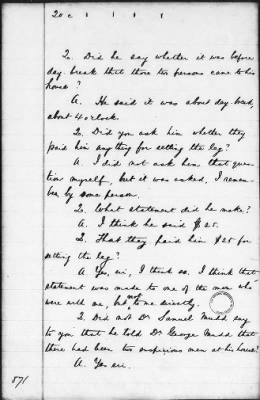 20 c 1 1 1 8
Q. Did he say whether it was before
day-break that those two persons came to his
house?
A. He said it was about day-break,
about 4 o'clock.
Q. Did you ask him whether they
paid him anything for setting the leg?
A. I did not ask him that ques-
tion myself, but it was asked, I remem-
ber, by some person.
Q. What statement did he make?
A. I think he said $25.
Q. That they paid him $25 for
setting the leg?
A. Yes, sir, I think so. I think that
statement was made to one of the men who
were with me, but not to me directly.
Q. Did not Dr Samuel Mudd say
to you that he told Dr George Mudd that
there had been two suspicious men at his house?
A. Yes sir.
871